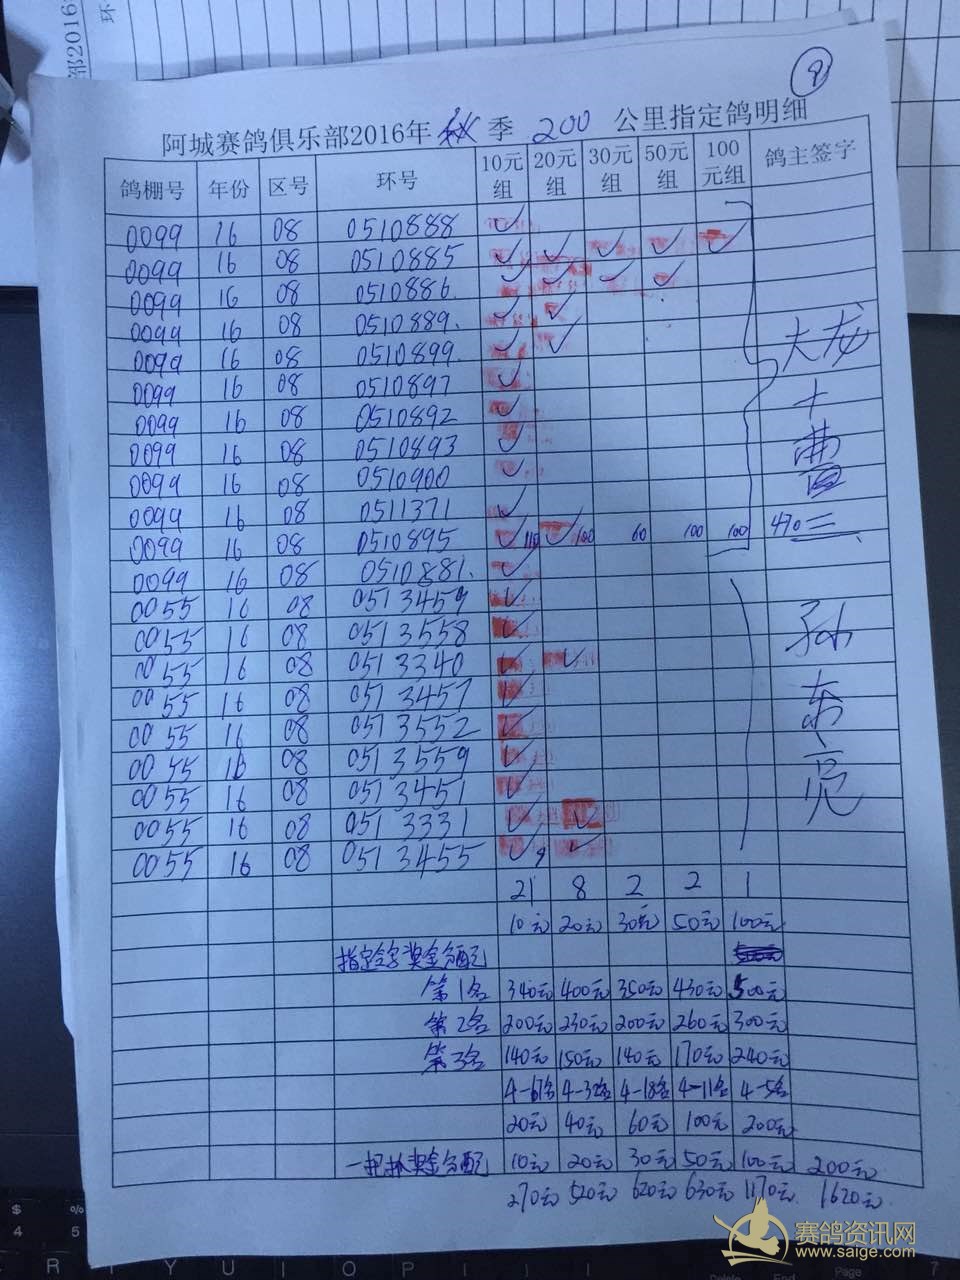 9
阿城赛鸽俱乐部2016年 秋 季 200 公里指定鸽明细
鸽棚号 年份 区号 环号 10元组 20元组 30元组 50元组 100元组 鸽主签字
0099 16 08 0510888 ✓
0099 16 08 0510885 ✓ ✓ ✓ ✓ ✓
0099 16 08 0510886. ✓ ✓ ✓ ✓
0099 16 08 0510889. ✓ ✓
0099 16 08 0510899. ✓ ✓ 大龙
0099 16 08 0510897 ✓
0099 16 08 0510892 ✓ 十
0099 16 08 0510893 ✓ 曹
0099 16 08 0510900 ✓
0099 16 08 0511371 ✓
0099 16 08 0510895 ✓ 110 ✓ 100 60 100 100 470 三
0099 16 08 0510881. ✓
0055 16 08 0513459 ✓
0055 16 08 0513558 ✓ 孙
0055 16 08 0513340 ✓ ✓
0055 16 08 0513457 ✓ 东
0055 16 08 0513552 ✓
0055 16 08 0513559 ✓ 亮
0055 16 08 0513451 ✓
0055 16 08 0513331 ✓ ✓
0055 16 08 0513455 ✓ 9 ✓
21 8 2 2 1
10元 20元 30元 50元 100元
指定鸽奖金分配
第1名 340元 400元 350元 430元 500元
第2名 200元 230元 200元 260元 300元
第3名 140元 150元 140元 170元 240元
4-67名 4-32名 4-18名 4-11名 4-5名
20元 40元 60元 100元 200元
一把抓奖金分配 10元 20元 30元 50元 100元 200元
270元 520元 620元 630元 1170元. 1620元.
赛鸽资讯网
www.saige.com
$ %
4 5 7
R T Y U I O P